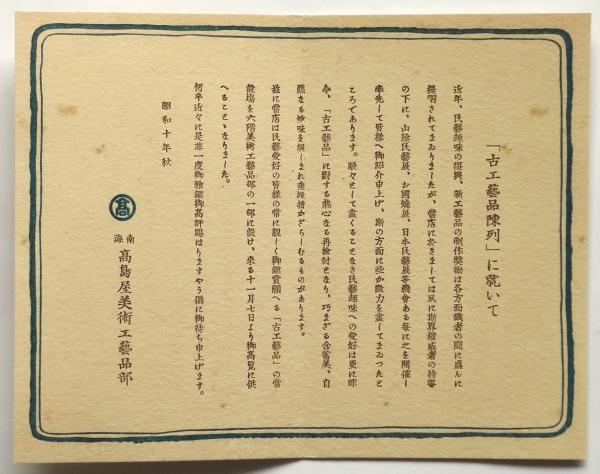 「古工藝品陳列」に就いて
近年、民藝趣味の復興、新工藝品の制作奬勵は各方面識者の間に盛んに
提唱されてまゐりましたが、當店に於きましては夙に斯界權威者の指導
の下に、山陰民藝展、お國燒展、日本民藝展等機會ある毎に之を開催し
率先して皆樣へ御紹介申上げ、斯の方面に些か微力を盡してまゐつたと
ころであります。駸々として盡くることなき民藝趣味への愛好は更に昨
今、「古工藝品」に對する熱心なる再檢討となり、巧まざる含蓄美、自
然なる妙味を娯しまれ愛撫措かざらしむるものがあります。
茲に當店は民藝愛好の皆樣の常に親しく御鑑賞願へる「古工藝品」の常
設場を六階美術工藝品部の一部に設け、來る十一月七日より御高覽に供
へることゝなりました。
何卒近々に是非一度御雅鑑御高評賜はりますやう偏に御待ち申上げます。
昭和十年秋
髙
南海
高島屋美術工藝品部